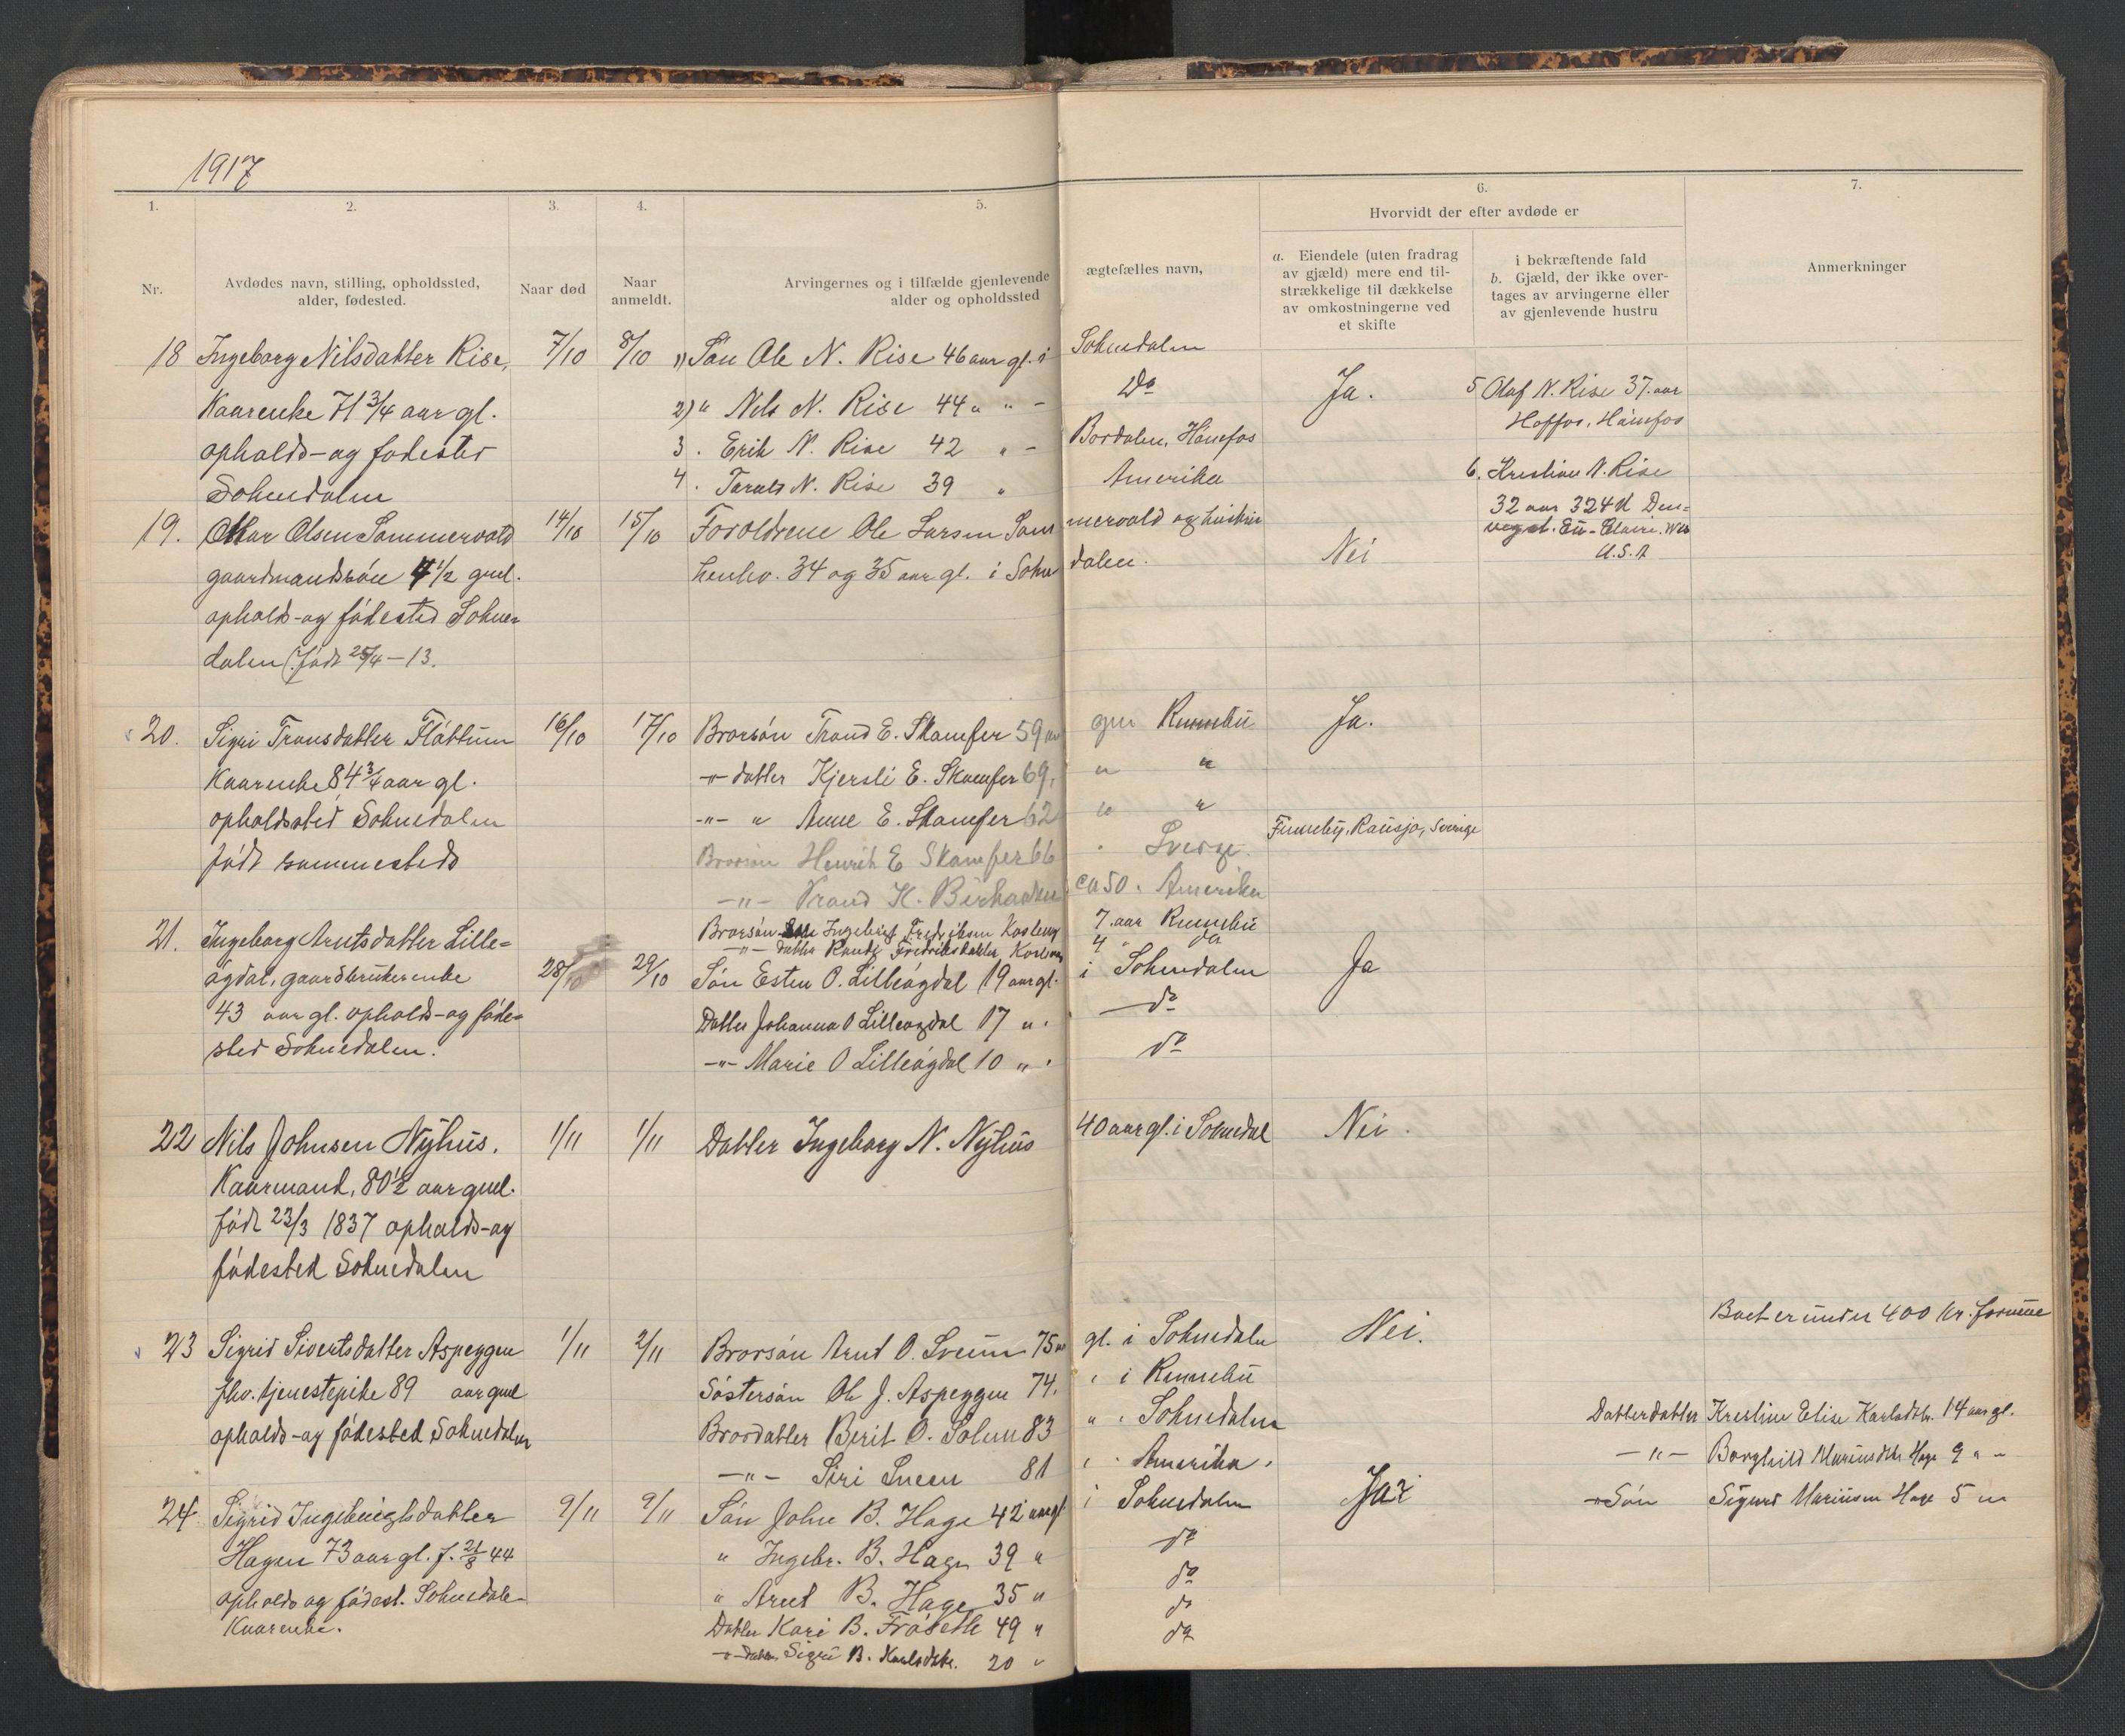 1917
1.
2.
3.
4.
5.
6.
7.
Nr.
Avdødes navn, stilling, opholdssted,
alder, fødested.
Naar død
Naar
anmeldt.
Arvingernes og i tilfælde gjenlevende ægtefælles navn,
alder og opholdssted
Hvorvidt der efter avdøde er
a. Eiendele (uten fradrag
av gjæld) mere end til-
strækkelige til dækkelse
av omkostningerne ved
et skifte
i bekræftende fald
b. Gjæld, der ikke over-
tages av arvingerne eller
av gjenlevende hustru
Anmerkninger
18 Ingeborg Nilsdatter Rise, 7/10 8/10 1) Søn Ole N. Rise 46 aar gl. i Soknedalen
Kaarenke 71 3/4 aar gl. 2) " Nils N. Rise 44 " " - Do Ja. 5 Olaf N. Rise 37. aar
Hoffos, Hønefos
opholds- og fødested 3 . Erik N. Rise 42 " - Bordalen, Hønefos
Soknedalen 4 . N. Rise 39 " Amerika 6. N. Rise
32 aar 324
Eu-Claire. Wis
U.S.A
19. Olsen Sommervold 14/10 15/10 Forældrene Ole Larsen Sommervold og hustru
gaardmandssøn 4 1/2 gml. henhv. 34 og 35 aar gl. i Soknedalen. Nei
ophold- og fødested Sokne-
dalen (født 25/4 - 13.
20. Sigri Tronsdatter Fløttum 16/10 17/10 Brorsøn Trond E. Skamfer 59 Rennebu Ja.
Kaarenke 84 3/4 aar gl. -"- datter Kjersti E. Skamfer 69, " "
opholdssted Soknedalen -"- " Anne E. Skamfer 62 " "
født sammesteds Brorsøn Henrik E Skamfer 66 " Sverge. Funneby, Rausjø, Sverige
-"- Trond K. ca 50. Amerika
Brorsøn Ingebrigt Fredriksen 7. aar Rennebu
-"- datter Randi Fredriksdatter 4 " do
21. Ingeborg Arntsdatter Lille-
øgdal, gaardbrukerenke 28/10 29/10 Søn Esten O. Lilleøgdal 19 aar gl. i Soknedalen Ja
43 aar gl. opholds- og føde- Datter Johanna O Lilleøgdal 17 " . do
sted Soknedalen. -"- Marie O Lilleøgdal 10 " . do
22 Nils Johnsen Nyhus. 1/11 1/11 Datter Ingeborg N. Nyhus 40 aar gl. i Soknedal Nei.
Kaarmand, 80 1/2 aar gml.
født 23/3 1837 opholds- og
fødested Soknedalen
Boet er under 400 kr. formue
23 Sigrid Sivertsdatter Aspeggen 1/11 2/11 Brorsøn Arnt O. Sveum 75 gl. i Soknedalen Nei.
fhv. tjenestepike 89 aar gml Søstersøn Ole J. Aspeggen 74. " i Rennebu
opholds- og fødested Soknedalen Brordatter Berit O. Solem 83 " . Soknedalen Datterdatter Kristine Elise Karlsdtr. 14 aar gl.
-"- Siri 81 " . Amerika. -"- Borghild Mariusdtr Hage 9 " -
24. Sigrid Ingebrigtsdatter 9/11 9/11 Søn John B. Hage 42 aar gl i Soknedalen Ja Søn Sigurd Mariusen Hage 5 "
Hagen 73 aar gl. f. 21/8 44 " Ingebr. B. Hage 39 " do
opholds og fødest. Soknedalen " Arnt B. Hage 35 " do
Kaarenke. Datter Kari B. Frøseth 49 " do
-"- Datter. Sigri B. Karlsdtr. 20 " do